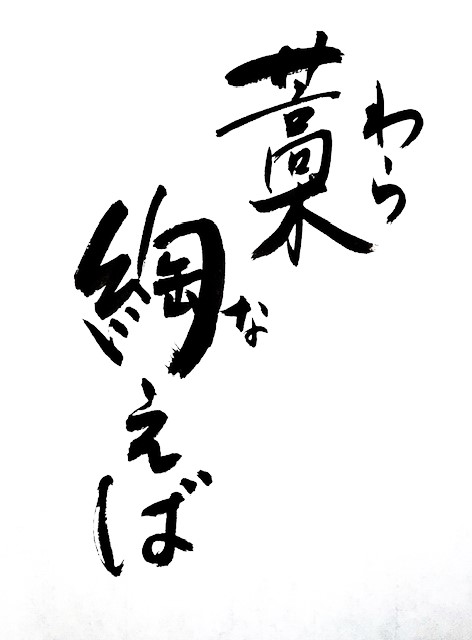 わら
藁
な
綯えば